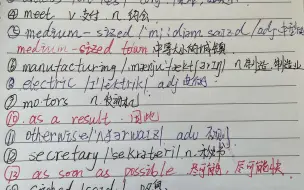 ④ meet v.支付 n.约会
⑤ medium-sized /ˌmiːdiəm saɪzd/ adj 中等
medium-sized town 中等大小的城镇
⑥ manufacturing /ˌmænjuˈfæktʃərɪŋ/ n.制造,制造业
⑧ electric /ɪˈlektrɪk/ adj 电的
⑨ motors n.发动机
⑩ as a result 因此
⑪ otherwise /ˈʌðərwaɪz/ adv 否则
⑫ secretary /ˈsekrəteri/ n.秘书
⑬ as soon as possible 尽可能快